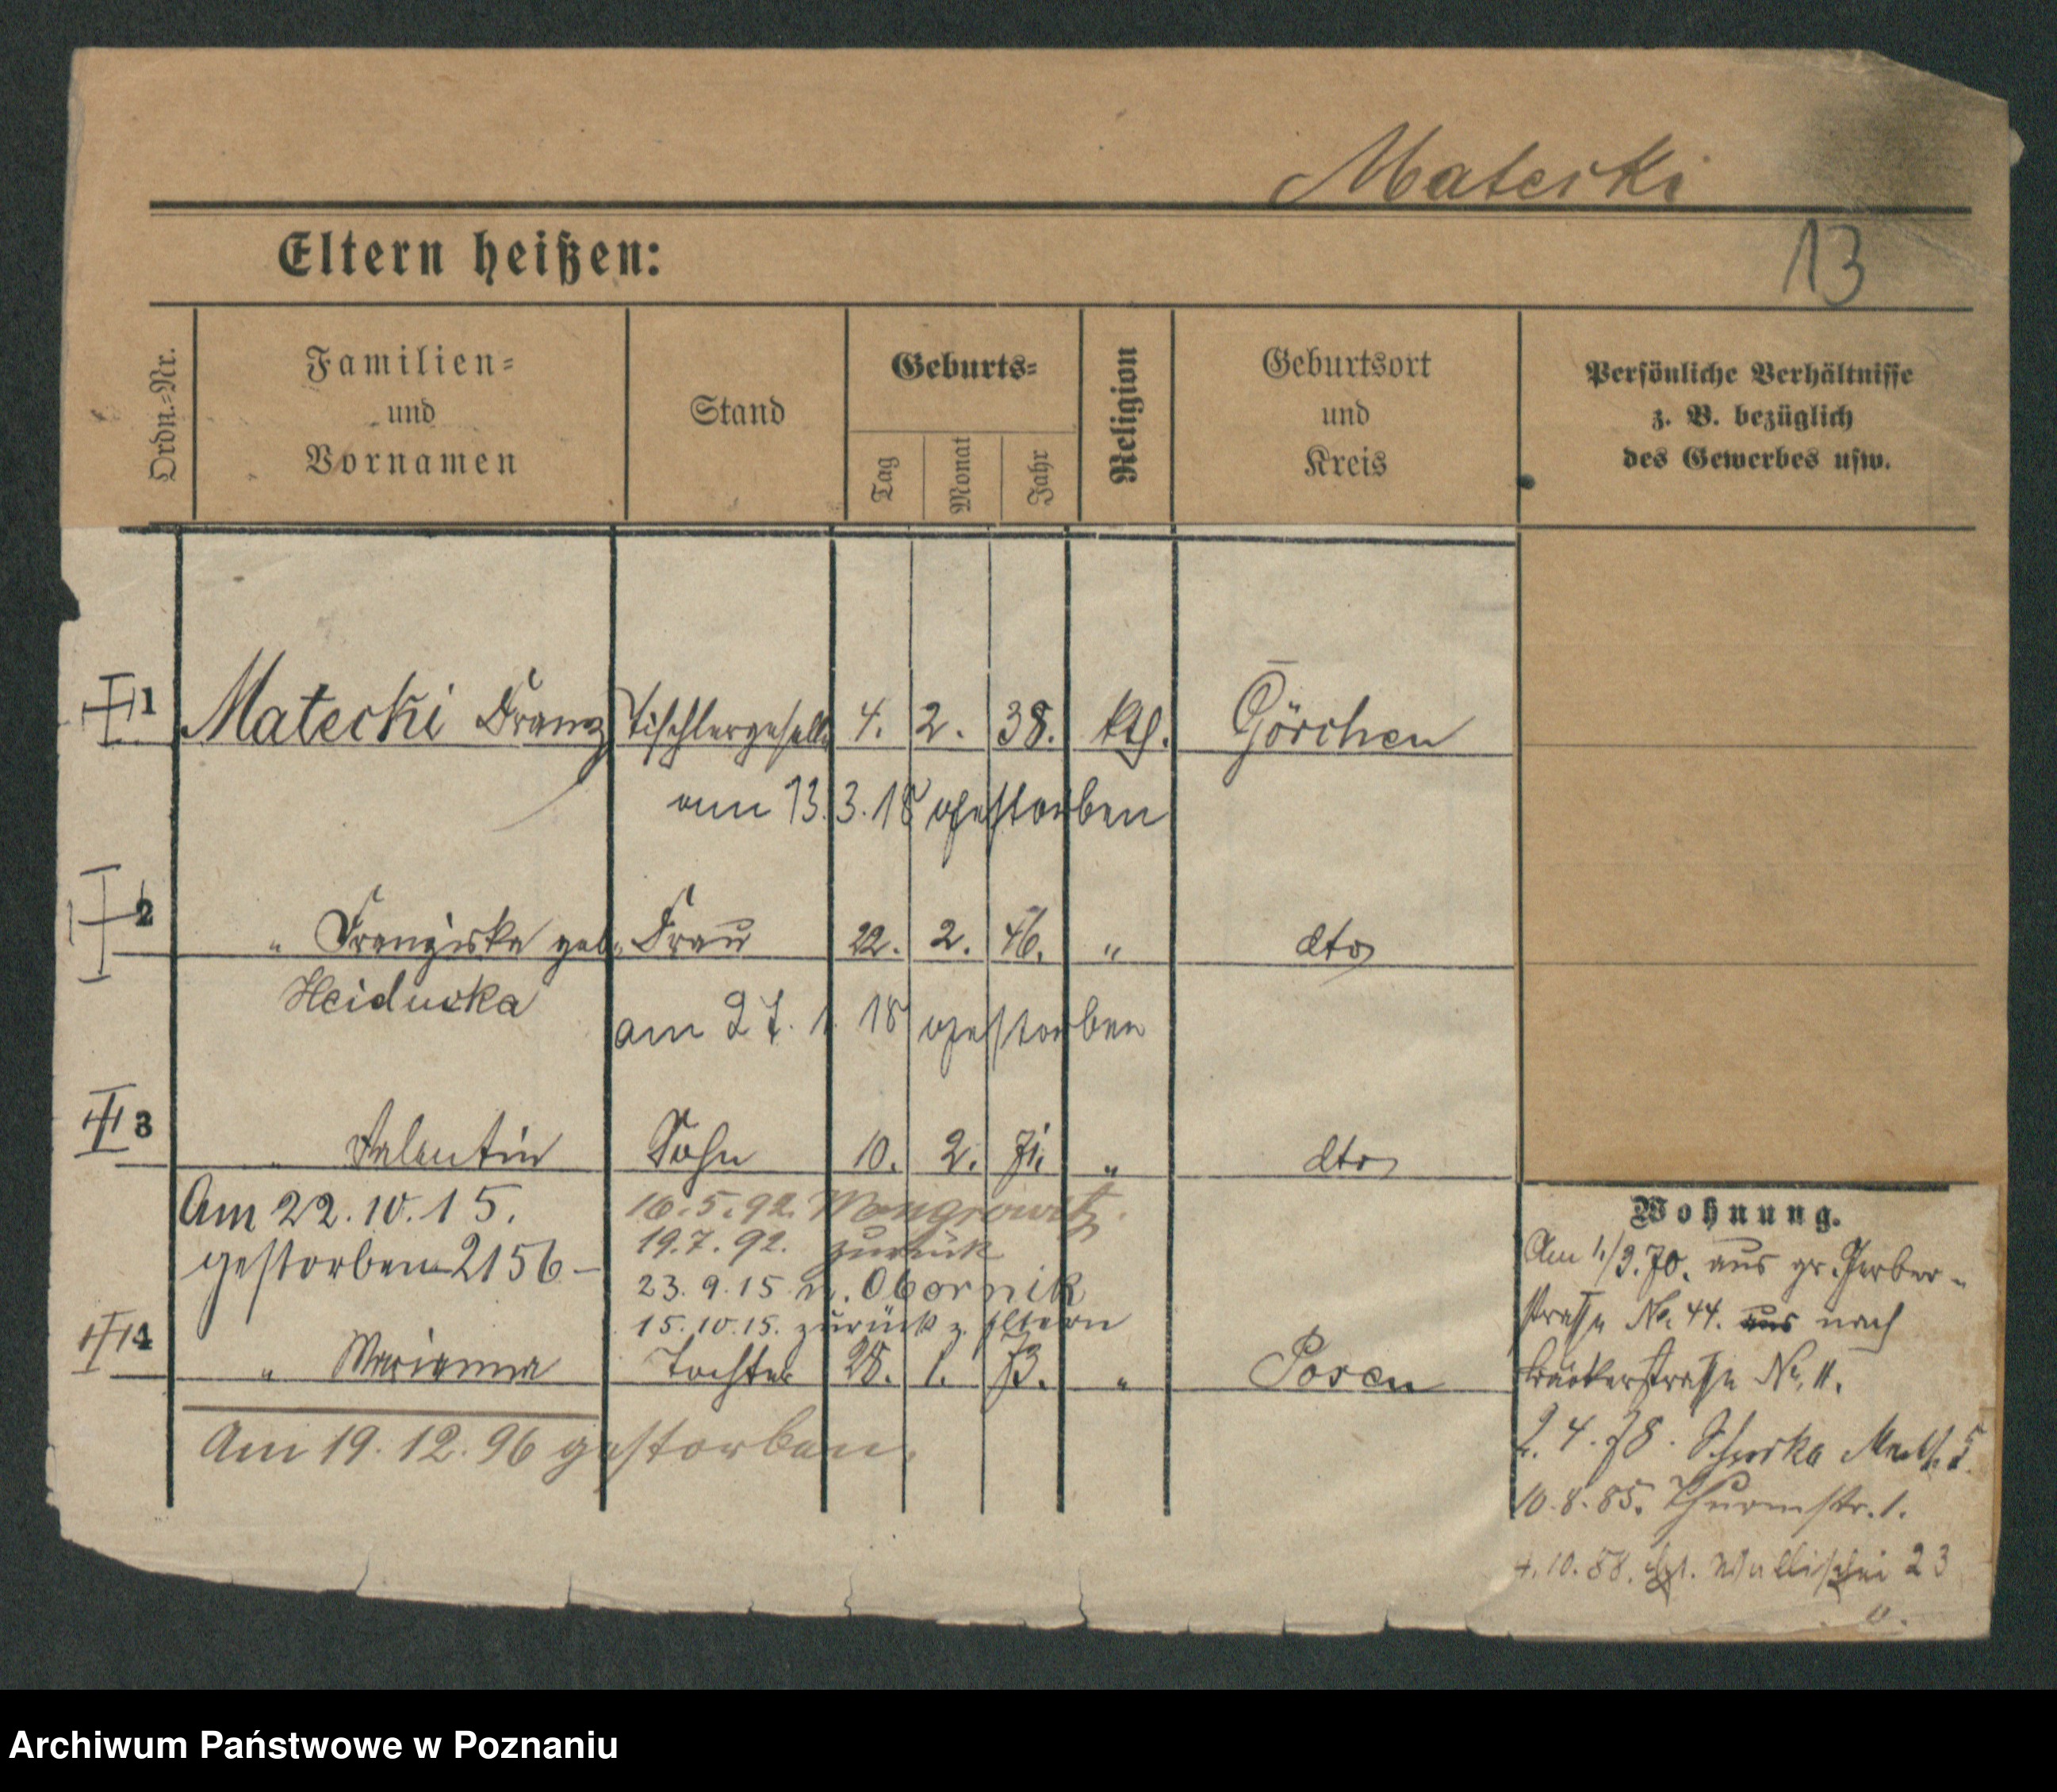 Matecki
Eltern heißen:
13
Ordn.-Nr.
Familien-
und
Vornamen
Stand
Geburts-
Tag
Monat
Jahr
Religion
Geburtsort
und
Kreis
Persönliche Verhältnisse
z. B. bezüglich
des Gewerbes usw.
1 Matecki Franz Tischlergeselle 4. 2. 38. kth. Görchen
am 13.3.18 gestorben
2 " Franziska geb. Frau 22. 2. 46. " dto
Heiducka
am 27. 1. 18 gestorben
3 " Valentin Sohn 10. 2. 71. " dto
Am 22.10.15.
gestorben 2156-
16.5.92. Wongrowitz.
19.7.92. zurück
23.9.15. n. Obornik
15.10.15. zurück z. Eltern
4 " Marianna Tochter 28. 1. 73. " Posen
Am 19.12.96 gestorben.
Wohnung.
Am 1./3.70. aus gr. Gerber-
straße No. 44. aus nach
Bäckerstraße No. 11.
2.4.78. 5.
10.8.85. Thurmstr. 1.
4.10.88. Wallischei 23
Archiwum Państwowe w Poznaniu